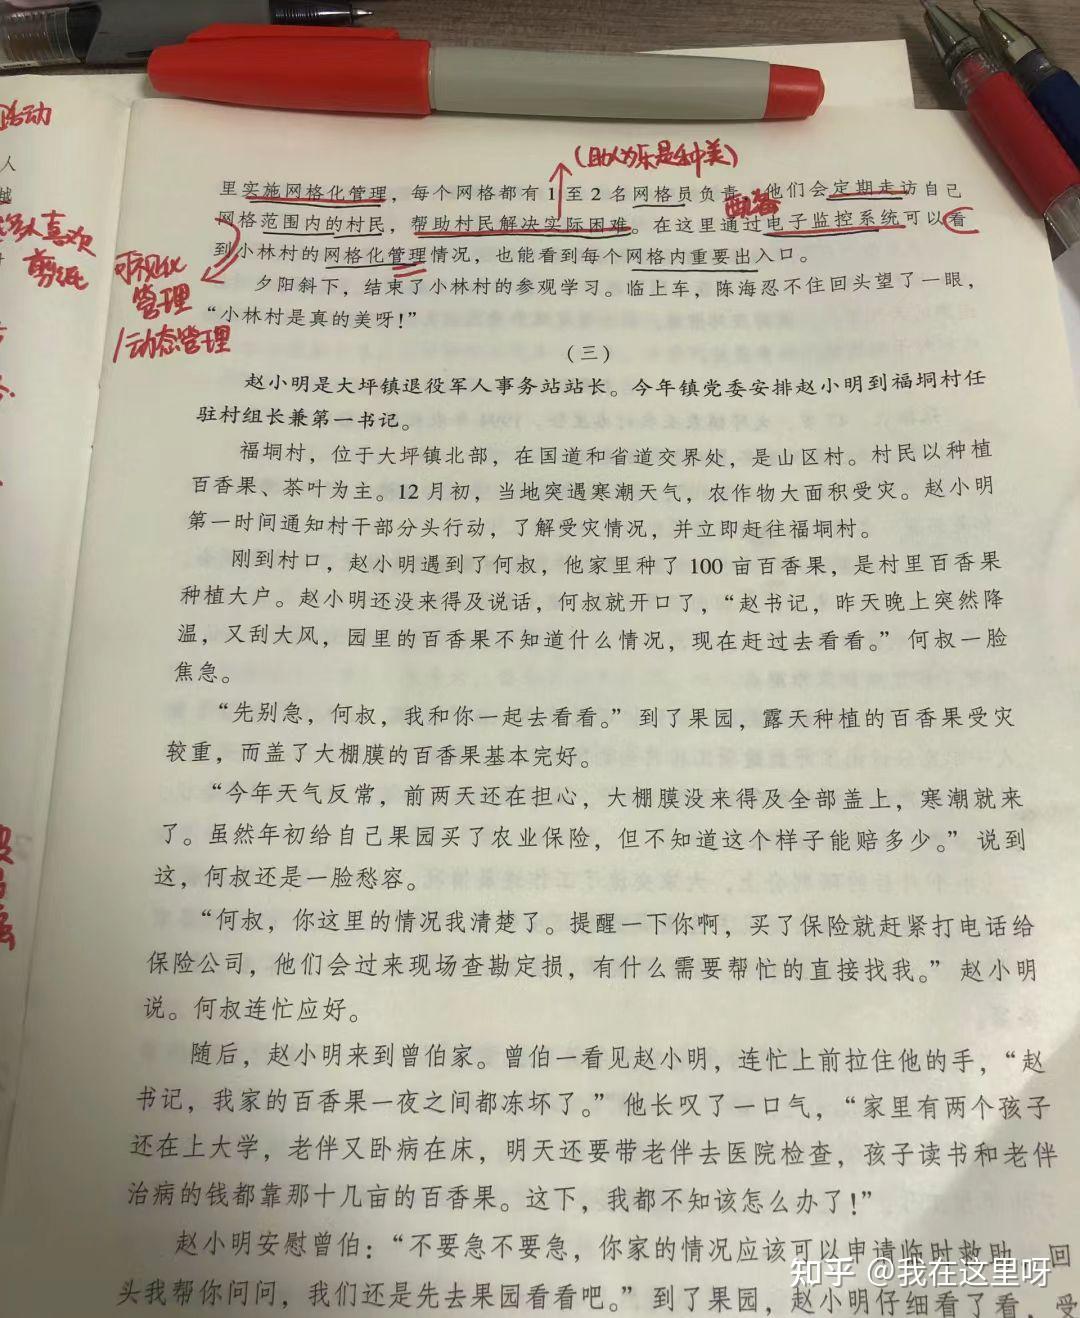 活动
人
越
人喜欢
剪纸
(助人为乐是种美)
里实施网格化管理，每个网格都有1至2名网格员负责，他们会定期走访自己
网格范围内的村民，帮助村民解决实际困难。在这里通过电子监控系统可以看
到小林村的网格化管理情况，也能看到每个网格内重要出入口。
可视化
管理
/动态管理
夕阳斜下，结束了小林村的参观学习。临上车，陈海忍不住回头望了一眼，
“小林村是真的美呀！”
（三）
赵小明是大坪镇退役军人事务站站长。今年镇党委安排赵小明到福垌村任
驻村组长兼第一书记。
福垌村，位于大坪镇北部，在国道和省道交界处，是山区村。村民以种植
百香果、茶叶为主。12月初，当地突遇寒潮天气，农作物大面积受灾。赵小明
第一时间通知村干部分头行动，了解受灾情况，并立即赶往福垌村。
刚到村口，赵小明遇到了何叔，他家里种了100亩百香果，是村里百香果
种植大户。赵小明还没来得及说话，何叔就开口了，“赵书记，昨天晚上突然降
温，又刮大风，园里的百香果不知道什么情况，现在赶过去看看。”何叔一脸
焦急。
“先别急，何叔，我和你一起去看看。”到了果园，露天种植的百香果受灾
较重，而盖了大棚膜的百香果基本完好。
“今年天气反常，前两天还在担心，大棚膜没来得及全部盖上，寒潮就来
了。虽然年初给自己果园买了农业保险，但不知道这个样子能赔多少。”说到
这，何叔还是一脸愁容。
“何叔，你这里的情况我清楚了。提醒一下你啊，买了保险就赶紧打电话给
保险公司，他们会过来现场查勘定损，有什么需要帮忙的直接找我。”赵小明
说。何叔连忙应好。
随后，赵小明来到曾伯家。曾伯一看见赵小明，连忙上前拉住他的手，“赵
书记，我家的百香果一夜之间都冻坏了。”他长叹了一口气，“家里有两个孩子
还在上大学，老伴又卧病在床，明天还要带老伴去医院检查，孩子读书和老伴
治病的钱都靠那十几亩的百香果。这下，我都不知该怎么办了！”
赵小明安慰曾伯：“不要急不要急，你家的情况应该可以申请临时救助，回
头我帮你问问，我们还是先去果园看看吧。”到了果园，赵小明仔细看了看，受
知乎 @我在这里呀